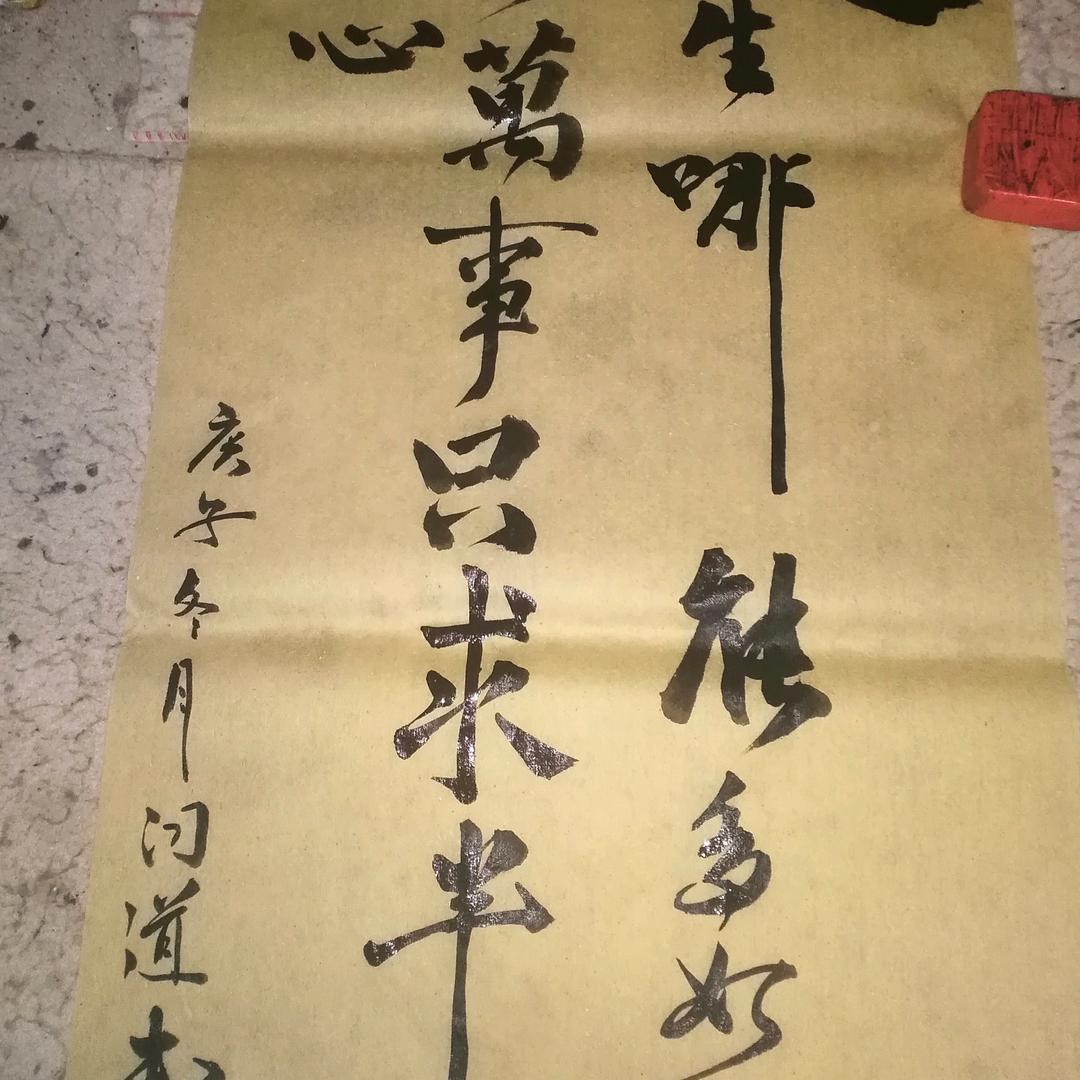 生哪能多如
萬事只求半
心
庚子冬月问道书